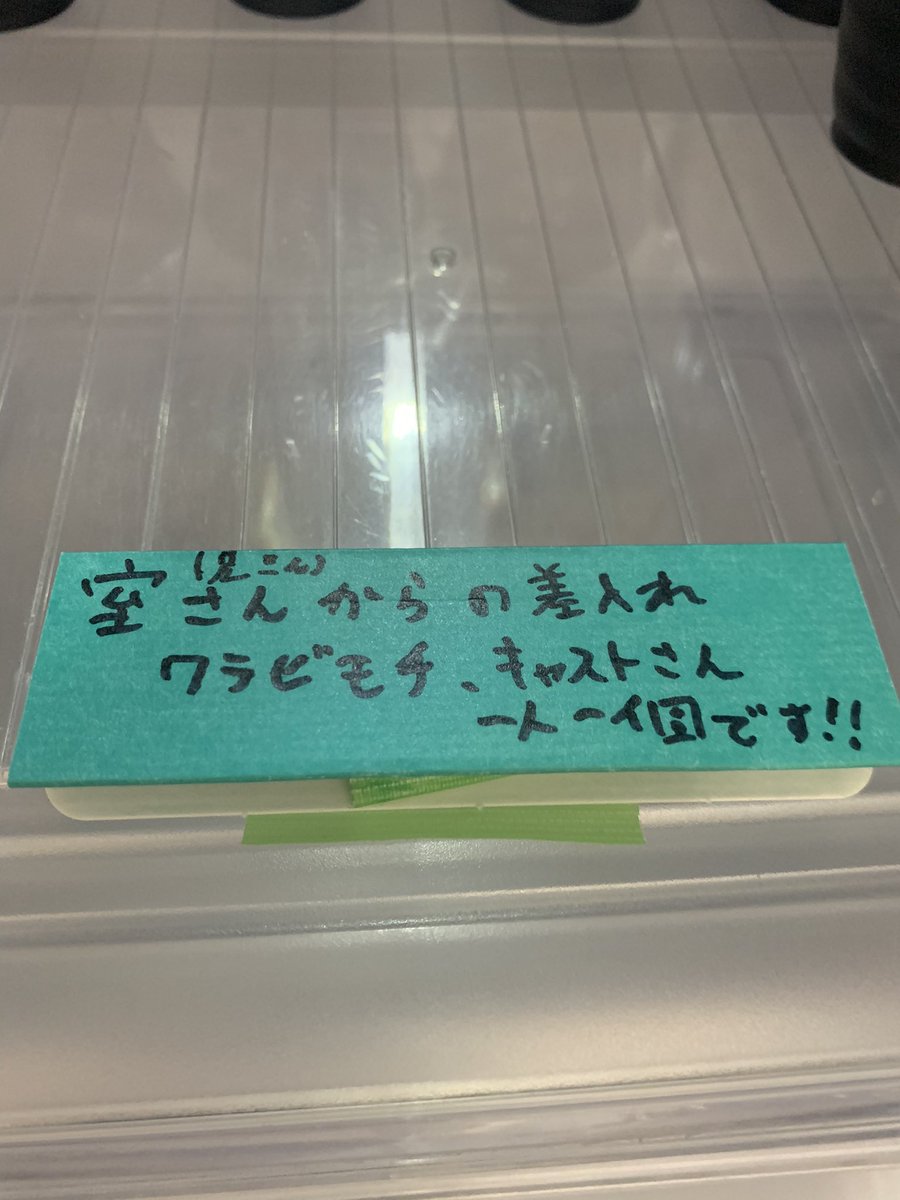 室さんからの差入れ
ワラビモチ、キャストさん
一人一個です!!